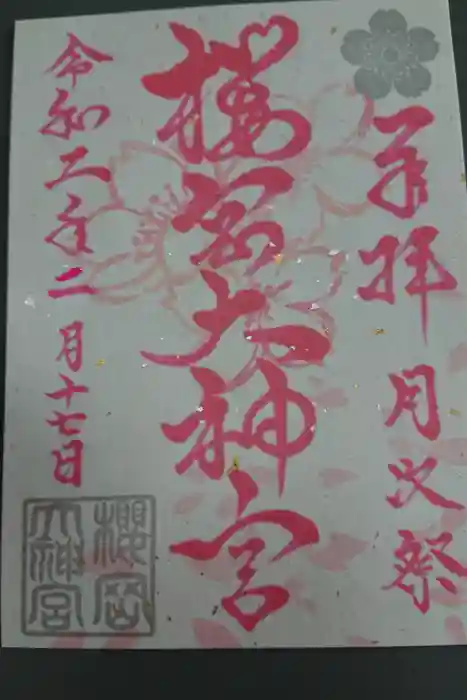 奉拝 月次祭
櫻岡大神宮
令和二年二月十七日
櫻岡
大神宮